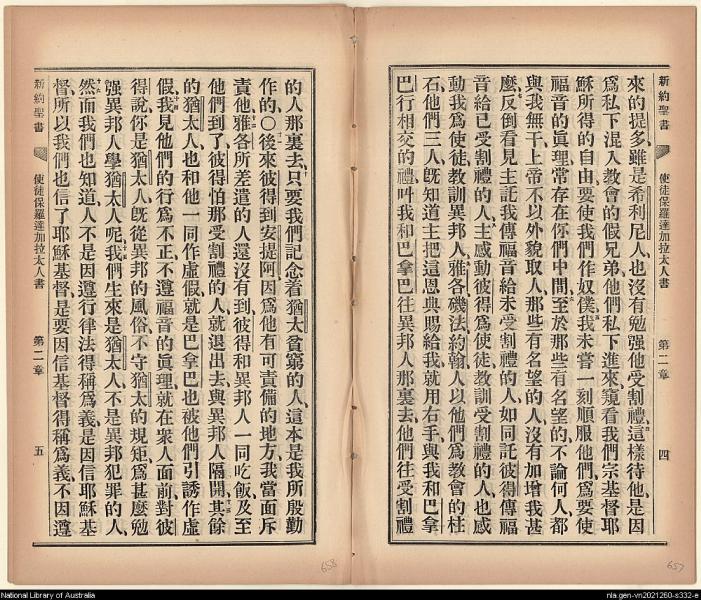 新約聖書 使徒保羅達加拉太人書 第二章 四
來的提多雖是希利尼人也沒有勉强他受割禮這樣待他是因
爲私下混入教會的假兄弟他們私下進來窺看我們宗基督耶
穌所得的自由要使我們作奴僕我未嘗一刻順服他們爲要使
福音的眞理常存在你們中間至於那些有名望的不論何人都
與我無干上帝不以外貌取人那些有名望的人沒有加增我甚
麽反倒看見主託我傳福音給未受割禮的人如同託彼得傳福
音給已受割禮的人主感動彼得爲使徒教訓受割禮的人也感
動我爲使徒教訓異邦人雅各磯法約翰人以他們爲教會的柱
石他們三人旣知道主把這恩典賜給我就用右手與我和巴拿
巴行相交的禮呌我和巴拿巴往異邦人那裏去他們往受割禮
的人那裏去只要我們記念着猶太貧窮的人這本是我所殷勤
作的〇後來彼得到安提阿因爲他有可責備的地方我當面斥
責他雅各所差遣的人還沒有到彼得和異邦人一同吃飯及至
他們到了彼得怕那受割禮的人就退出去與異邦人隔開其餘
的猶太人也和他一同作虛假就是巴拿巴也被他們引誘作虛
假我見他們的行爲不正不遵福音的眞理就在衆人面前對彼
得說你是猶太人旣從異邦的風俗不守猶太的規矩爲甚麽勉
强異邦人學猶太人呢我們生來是猶太人不是異邦犯罪的人
然而我們也知道人不是因遵行律法得稱爲義是因信耶穌基
督所以我們也信了耶穌基督是要因信基督得稱爲義不因遵
新約聖書 使徒保羅達加拉太人書 第二章 五
658
657
National Library of Australia
nla.gen-vn2021260-s332-e